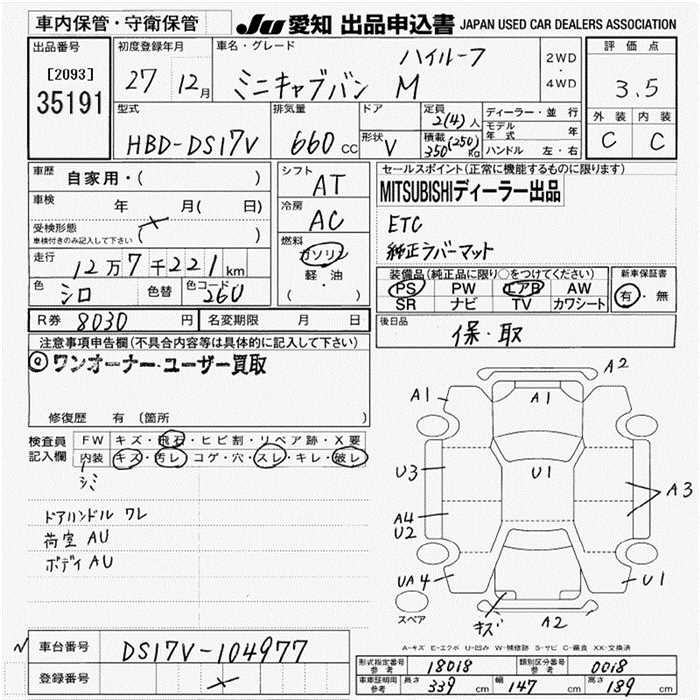 車内保管・守衛保管
JU 愛知 出品申込書 JAPAN USED CAR DEALERS ASSOCIATION
出品番号
[2093]
35191
初度登録年月
27 12月
車名・グレード
ハイルーフ
ミニキャブバン M
2WD
・
4WD
評価点
3.5
外装 内装
C C
型式
HBD-DS17V
排気量
660 CC
ドア
形状 V
定員 2(4) 人
積載 350(250) Kg
ディーラー・並行
モデル年式 年
ハンドル 左・右
車歴 自家用・( )
車検 年 月( 日)
受検形態
車検付きのみ記入して下さい ( )
走行 12万7千221km
色 シロ 色替 色コード 26U
シフト AT
冷房 AC
燃料
ガソリン
軽・油
( ・ )
セールスポイント(正常に機能するものに限ります)
MITSUBISHIディーラー出品
ETC
純正ラバーマット
装備品(純正品に限り○をつけてください)
PS PW エアB AW
SR ナビ TV カワシート
新車保証書
有・無
R券 8030 円 名変期限 月 日
後日品 保・取
注意事項申告欄(不具合内容等は具体的に記入して下さい)
◎ワンオーナー・ユーザー買取
修復歴 有 〔箇所 〕
検査員記入欄
FW キズ・飛石・ヒビ割・リペア跡・X要
内装 キズ・汚レ・コゲ・穴・スレ・キレ・破レ
シミ
ドアハンドル ワレ
荷室 AU
ボディ AU
A2
A1 A1
U3 U1 A3
A4
U2
UA4 U1
キズ A2
スペア
A-キズ E-エクボ U-凹み W-補修跡 S-サビ C-腐食 XX-交換済
車台番号 DS17V-104977
登録番号
形式指定番号 参考 18018 類別区分番号 参考 0018
車庫証明用 参考 長さ 339 cm 幅 147 cm 高さ 189 cm